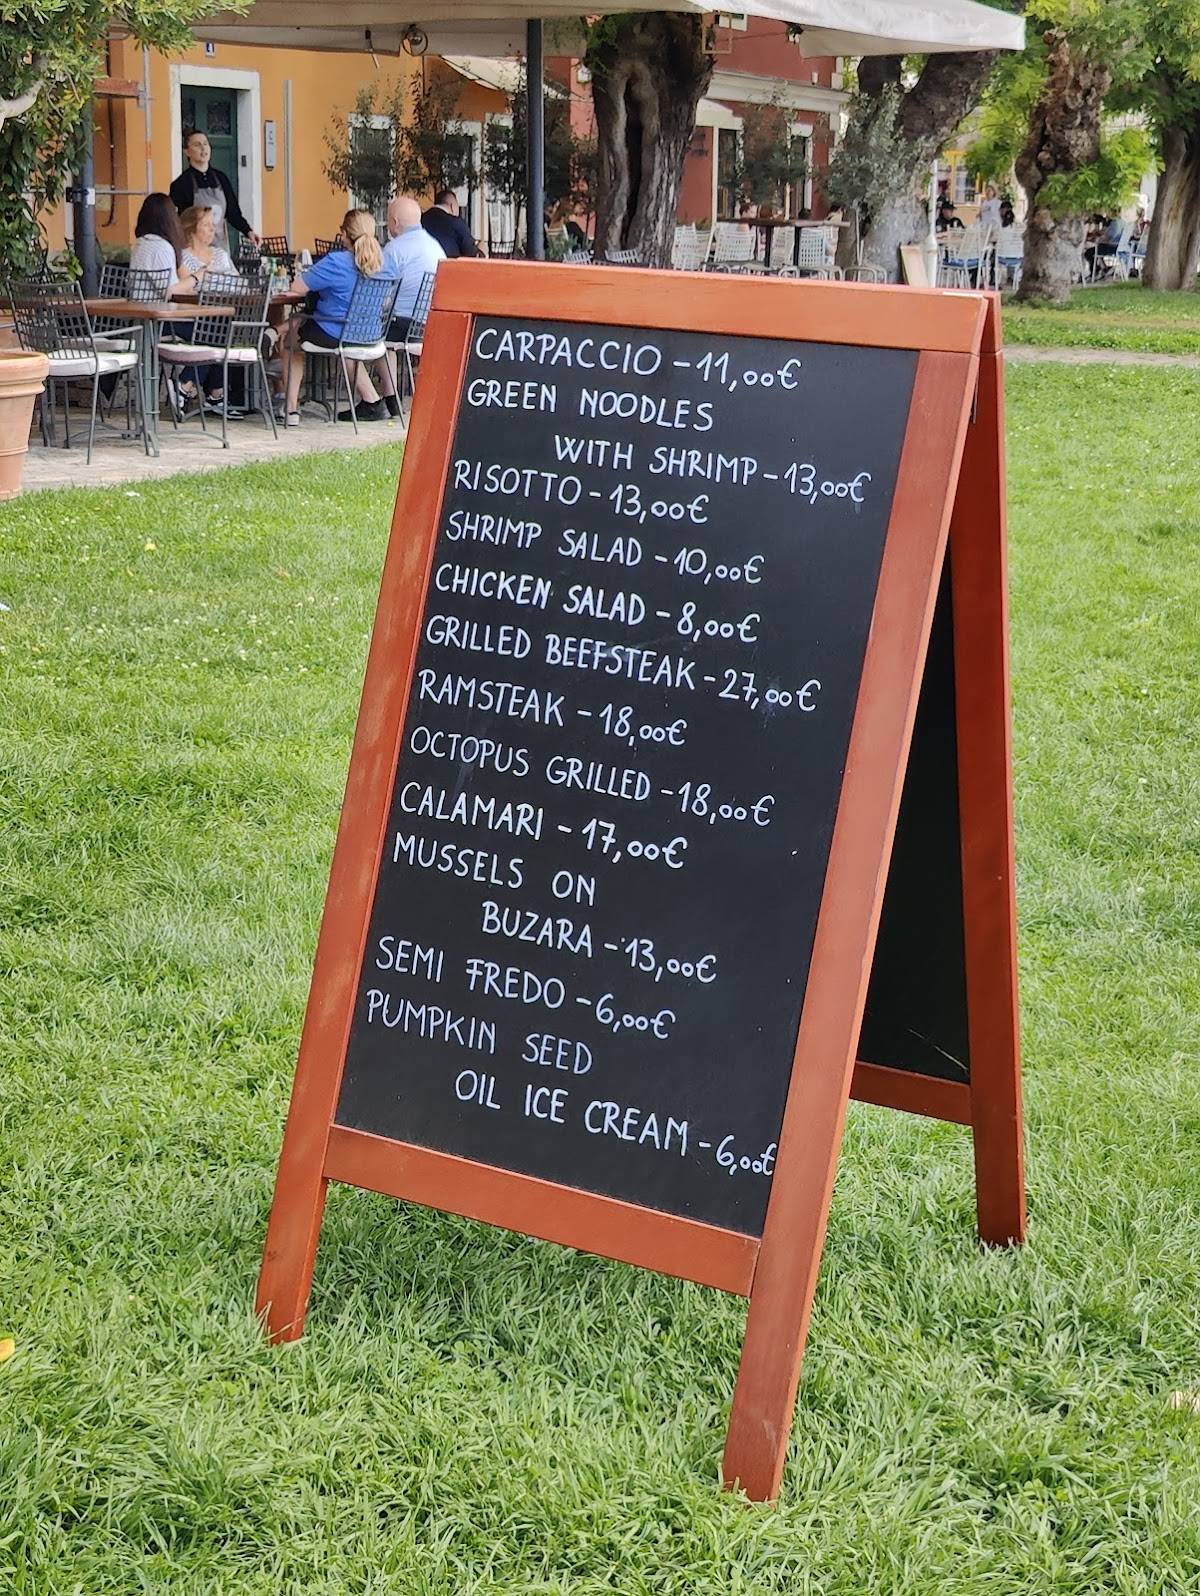 CARPACCIO - 11,00€
GREEN NOODLES
WITH SHRIMP - 13,00€
RISOTTO - 13,00€
SHRIMP SALAD - 10,00€
CHICKEN SALAD - 8,00€
GRILLED BEEFSTEAK - 27,00€
RAMSTEAK - 18,00€
OCTOPUS GRILLED - 18,00€
CALAMARI - 17,00€
MUSSELS ON
BUZARA - 13,00€
SEMI FREDO - 6,00€
PUMPKIN SEED
OIL ICE CREAM - 6,00€